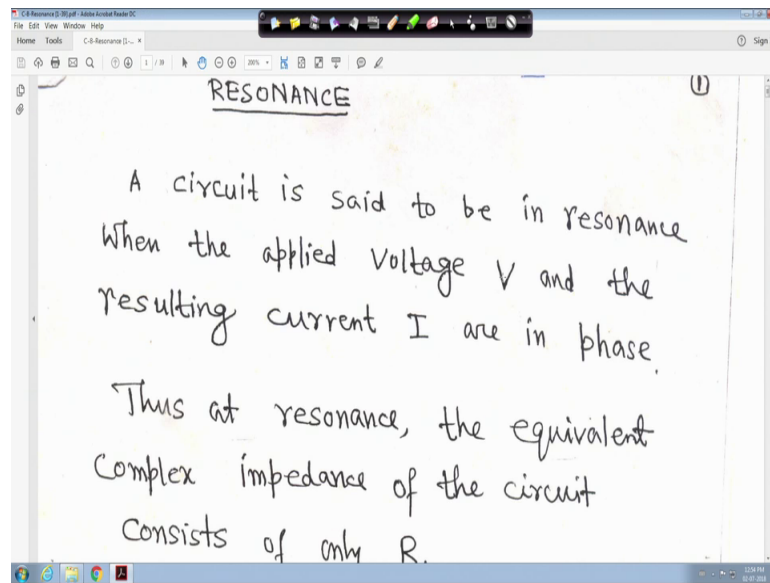 C-8-Resonance [1-39].pdf - Adobe Acrobat Reader DC
File Edit View Window Help
Home Tools C-8-Resonance [1-... ×
Sign
1 / 39
200%
RESONANCE
1
A circuit is said to be in resonance
When the applied Voltage V and the
resulting current I are in phase.
Thus at resonance, the equivalent
Complex impedance of the circuit
Consists of only R.
12:54 PM